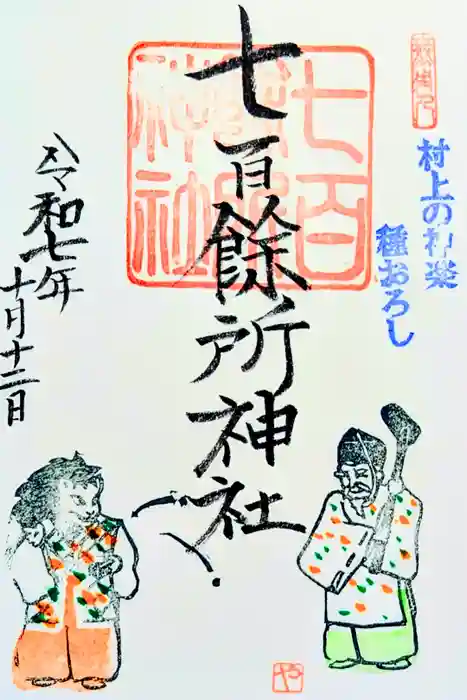 村上の神楽
種おろし
七百餘所神社
七百
神社
令和七年
十月十二日
や